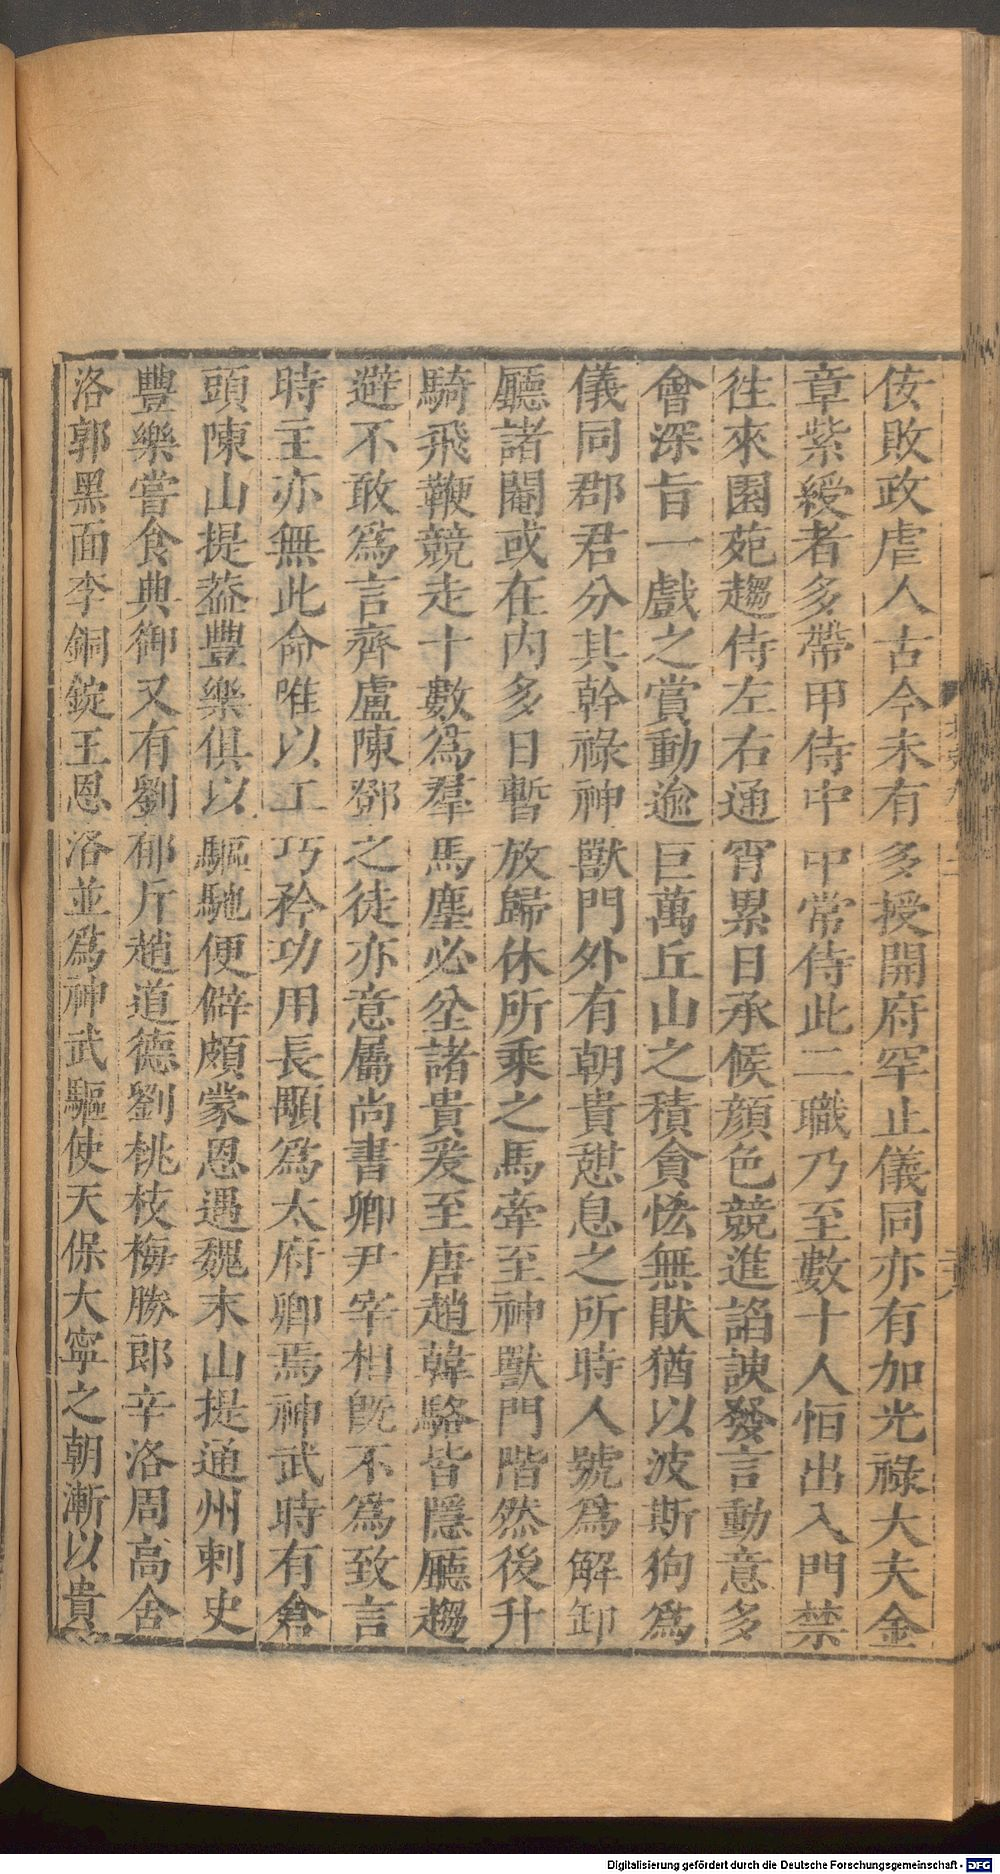 佞敗政虐人古今未有多授開府罕止儀同亦有加光祿大夫金
章紫綬者多帶甲侍中中常侍此二職乃至數十人恒出入門禁
往來園苑趨侍左右通宵累日承候顔色競進諂諛發言動意多
會深旨一戲之賞動逾巨萬丘山之積貪恡無猒猶以波斯狗爲
儀同郡君分其幹祿神獸門外有朝貴憇息之所時人號爲解卸
廳諸閹或在内多日暫放歸休所乘之馬牽至神獸門階然後升
騎飛鞭競走十數爲羣馬塵必坌諸貴爰至唐趙韓駱皆隱廳趨
避不敢爲言齊盧陳鄧之徒亦意屬尚書卿尹宰相旣不爲致言
時主亦無此命唯以工巧矜功用長顒爲太府卿焉神武時有倉
頭陳山提葢豐樂俱以驅馳便僻頗蒙恩遇魏末山提通州刺史
豐樂嘗食典御又有劉郁斤趙道德劉桃枝梅勝郎辛洛周高舍
洛郭黑面李銅鍉王恩洛並爲神武驅使天保大寧之朝漸以貴
Digitalisierung gefördert durch die Deutsche Forschungsgemeinschaft - DFG